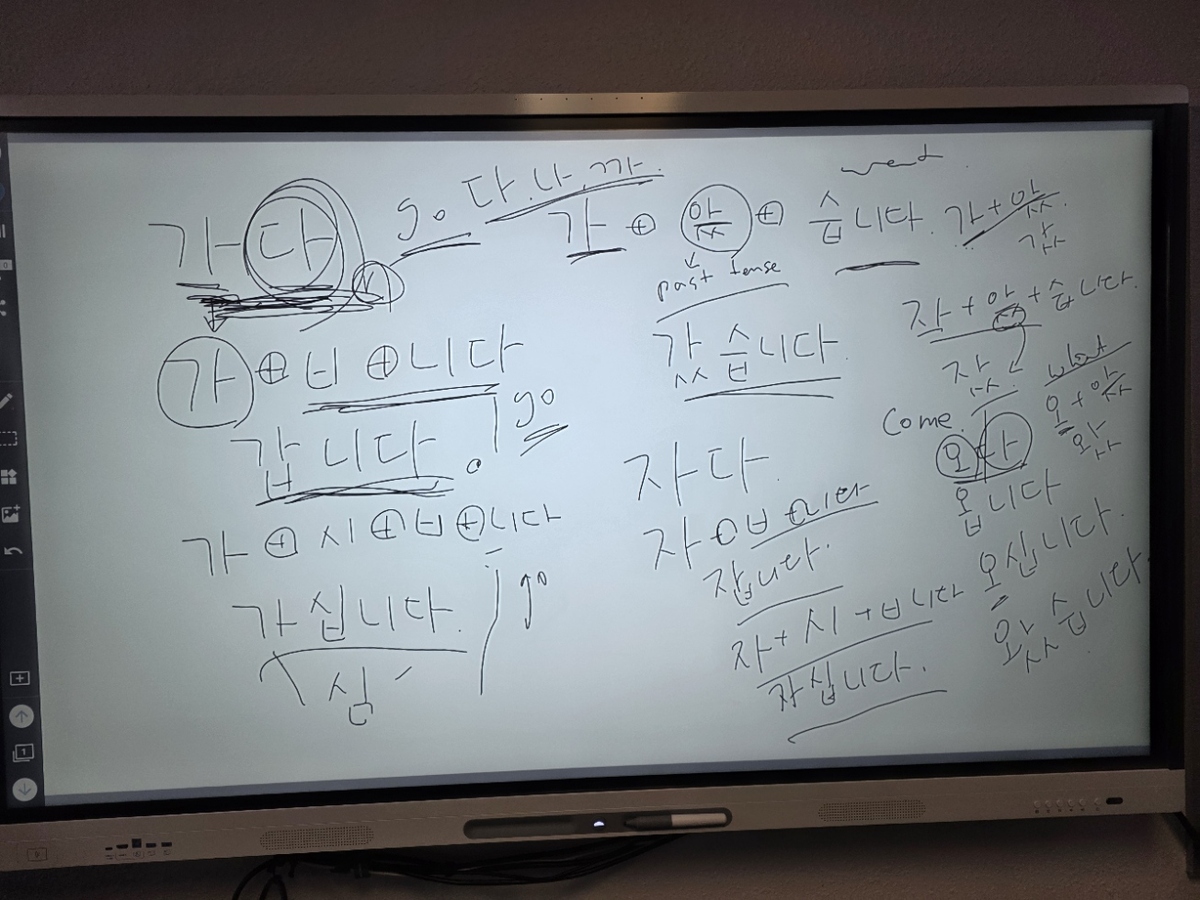 가다 go 다.나.까.
가 ⊕ ㅂ ⊕ 니다
갑니다. go
가 ⊕ 시 ⊕ ㅂ ⊕ 니다
가십니다. go
십
went
가 ⊕ 았 ⊕ 습니다.
past tense
갔습니다.
자다.
자 ⊕ ㅂ ⊕ 니다
잡니다.
자 + 시 + ㅂ니다
자십니다.
가 + 았.
갔
자 + 았 + 습니다.
잤.
what
오 + 았
왔
Come.
오다
옵니다
오십니다.
왔습니다.
1